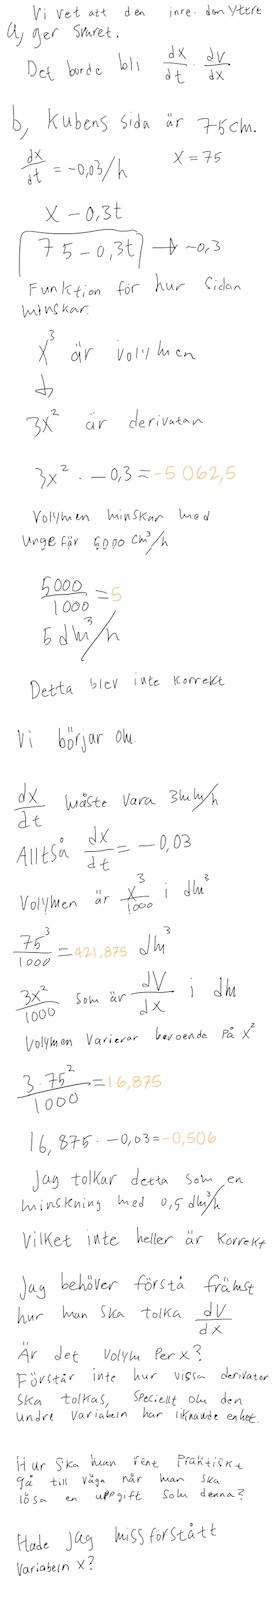 Vi vet att den inre. den yttre
a, ger svaret.
Det borde bli dx/dt · dV/dx
b, Kubens sida är 75cm.
dx/dt = -0,03/h x = 75
x - 0,3t
75 - 0,3t → -0,3
Funktion för hur sidan
minskar.
x³ är volymen
↓
3x² är derivatan
3x² · -0,3 = -5 062,5
Volymen minskar med
ungefär 5000 cm³/h
5000/1000 = 5
5 dm³/h
Detta blev inte korrekt
Vi börjar om.
dx/dt måste vara 3mm/h
Alltså dx/dt = -0,03
Volymen är x³/1000 i dm³
75³/1000 = 421,875 dm³
3x²/1000 som är dV/dx i dm
Volymen varierar beroende på x²
3·75²/1000 = 16,875
16,875 · -0,03 = -0,506
Jag tolkar detta som en
minskning med 0,5 dm³/h
Vilket inte heller är korrekt
Jag behöver förstå främst
hur man ska tolka dV/dx
Är det volym per x?
Förstår inte hur vissa derivator
ska tolkas, speciellt om den
undre variabeln har liknande enhet.
Hur ska man rent praktiskt
gå till väga när man ska
lösa en uppgift som denna?
Hade jag missförstått
variabeln x?